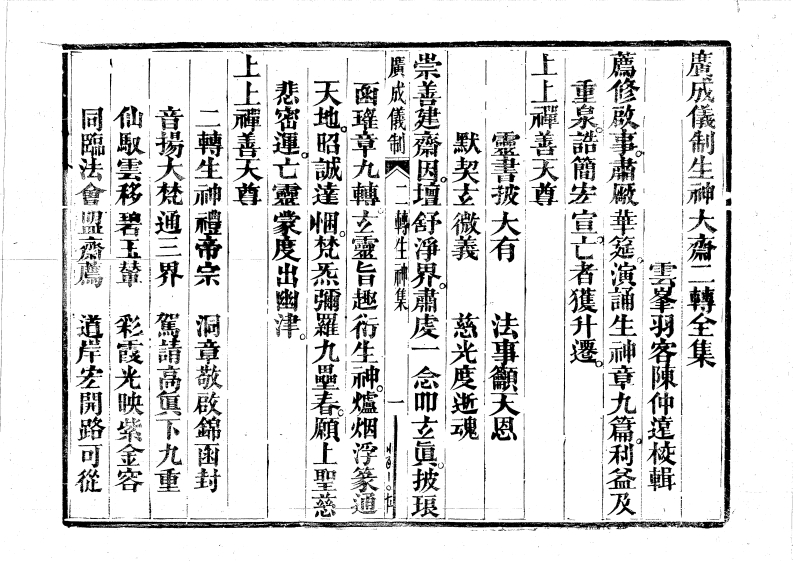 廣成儀制生神大齋二轉全集
雲峯羽客陳仲遠校輯
薦修啟事。肅厰華筵。演誦生神章九篇。利益及
重泉。誥簡宏宣。亡者獲升遷。
上上禪善天尊
靈書披大有　法事籲天恩
默契玄微義　慈光度逝魂
崇善建齋因。壇舒淨界。肅虔一念叩玄眞。披琅
廣成儀制　二轉生神集　一
函瑋章九轉。玄靈旨趣衍生神。爐烟浮篆通
天地。昭誠達悃。梵炁彌羅九壘春。願上聖慈
悲密運。亡靈蒙度出幽津。
上上禪善天尊
二轉生神禮帝宗　洞章敬啟錦函封
音揚大梵通三界　駕請高眞下九重
仙馭雲移碧玉輦　彩霞光映紫金容
同臨法會盟齋薦　道岸宏開路可從